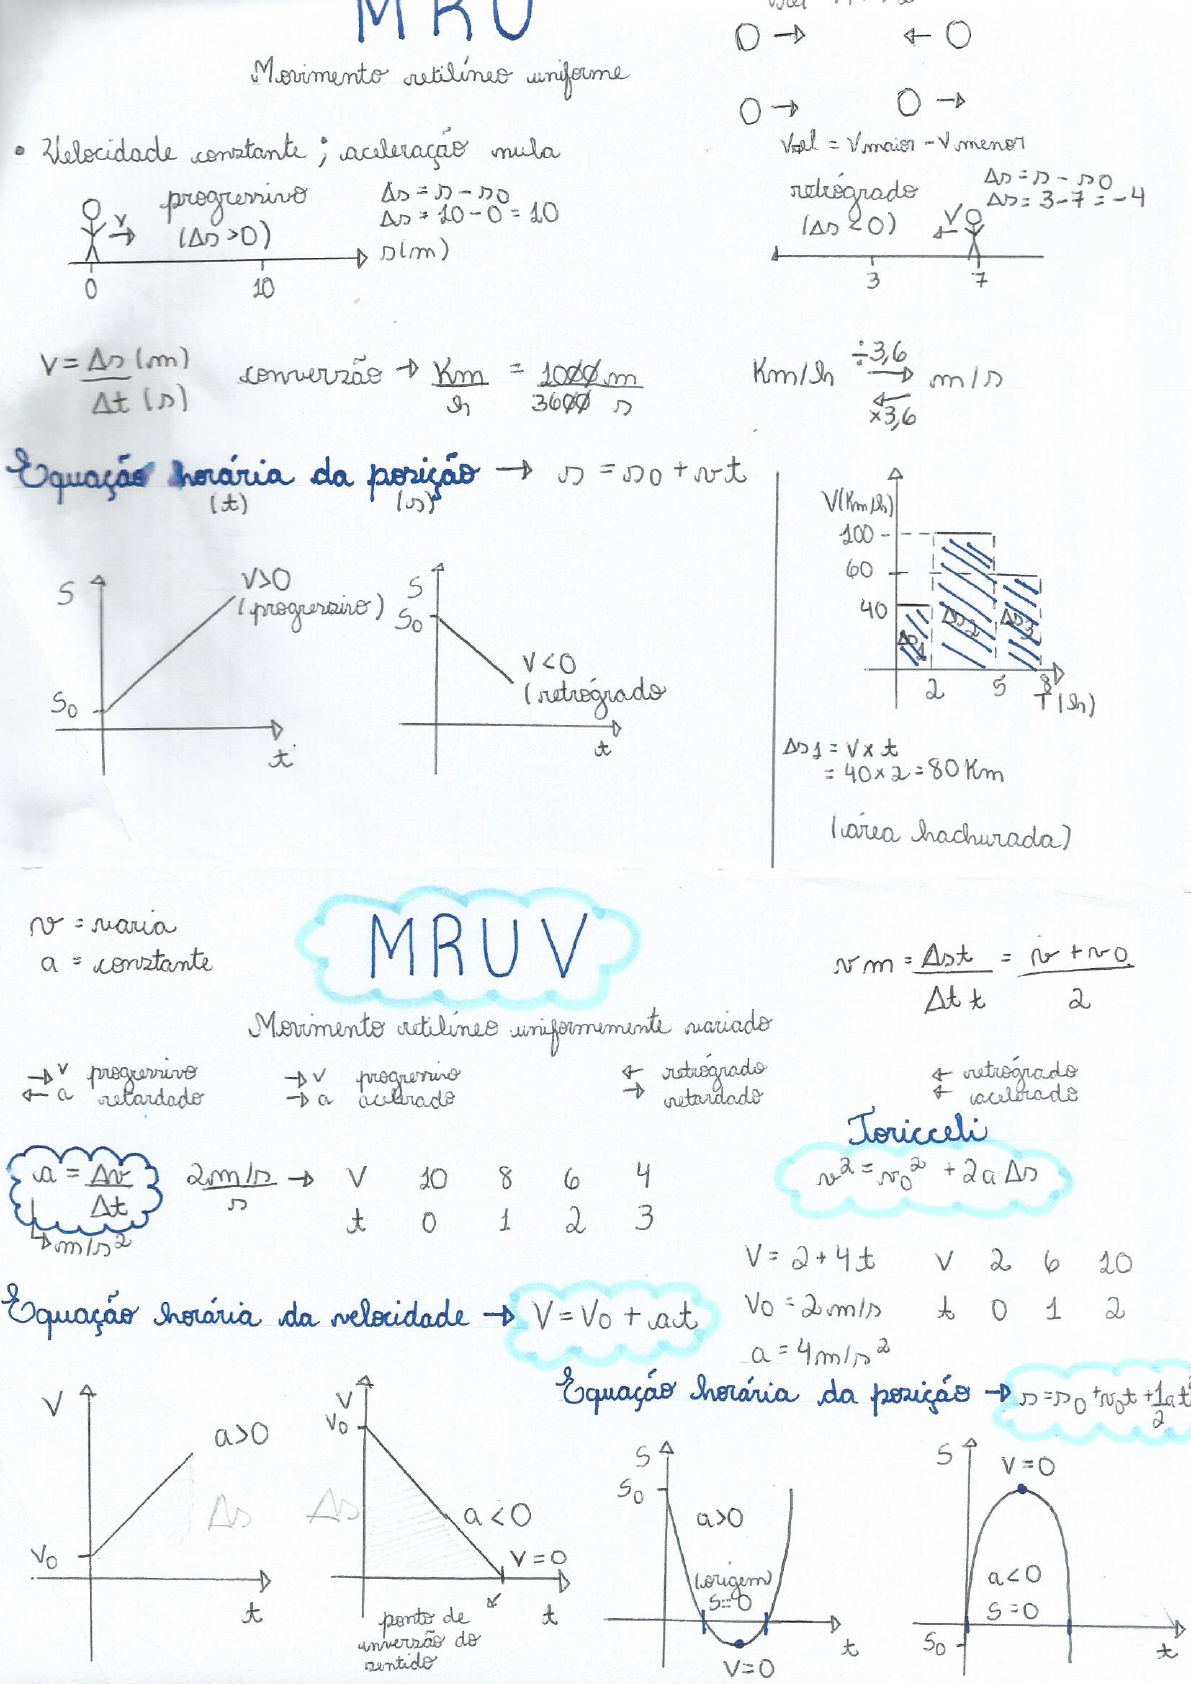 MRU
Movimento retilíneo uniforme
• Velocidade constante; aceleração nula
Vrel = Vmaior - Vmenor
progressivo
(Δs > 0)
Δs = s - s0
Δs = 10 - 0 = 10
v
s(m)
0 10
retrógrado
(Δs < 0)
Δs = s - s0
Δs = 3 - 7 = -4
v
3 7
V = Δs (m)
Δt (s)
conversão → Km = 1000 m
h 3600 s
Km/h ÷3,6 → m/s
← ×3,6
Equação horária da posição → s = s0 + vt
(t) (s)
S
V>0
(progressivo)
S0
t
S
S0
V<0
(retrógrado
t
V(Km/h)
100
60
40
Δs1 Δs2 Δs3
2 5 8
T(h)
Δs1 = V x t
= 40 x 2 = 80 Km
(área hachurada)
v = varia
a = constante
MRUV
vm = Δst = v + v0
Δt t 2
Movimento retilíneo uniformemente variado
→ v progressivo
← a retardado
→ v progressivo
→ a acelerado
← retrógrado
→ retardado
← retrógrado
← acelerado
Toricceli
v² = v0² + 2a Δs
a = Δv
Δt
↳ m/s²
2m/s → V 10 8 6 4
s t 0 1 2 3
V = 2 + 4t V 2 6 10
V0 = 2m/s t 0 1 2
a = 4m/s²
Equação horária da velocidade → V = V0 + at
Equação horária da posição → s = s0 + v0t + 1at²
2
V
a>0
Δs
V0
t
V
V0
Δs
a<0
V=0
t
ponto de
inversão do
sentido
S
S0
a>0
(origem)
S=0
t
V=0
S
V=0
a<0
S=0
S0
t